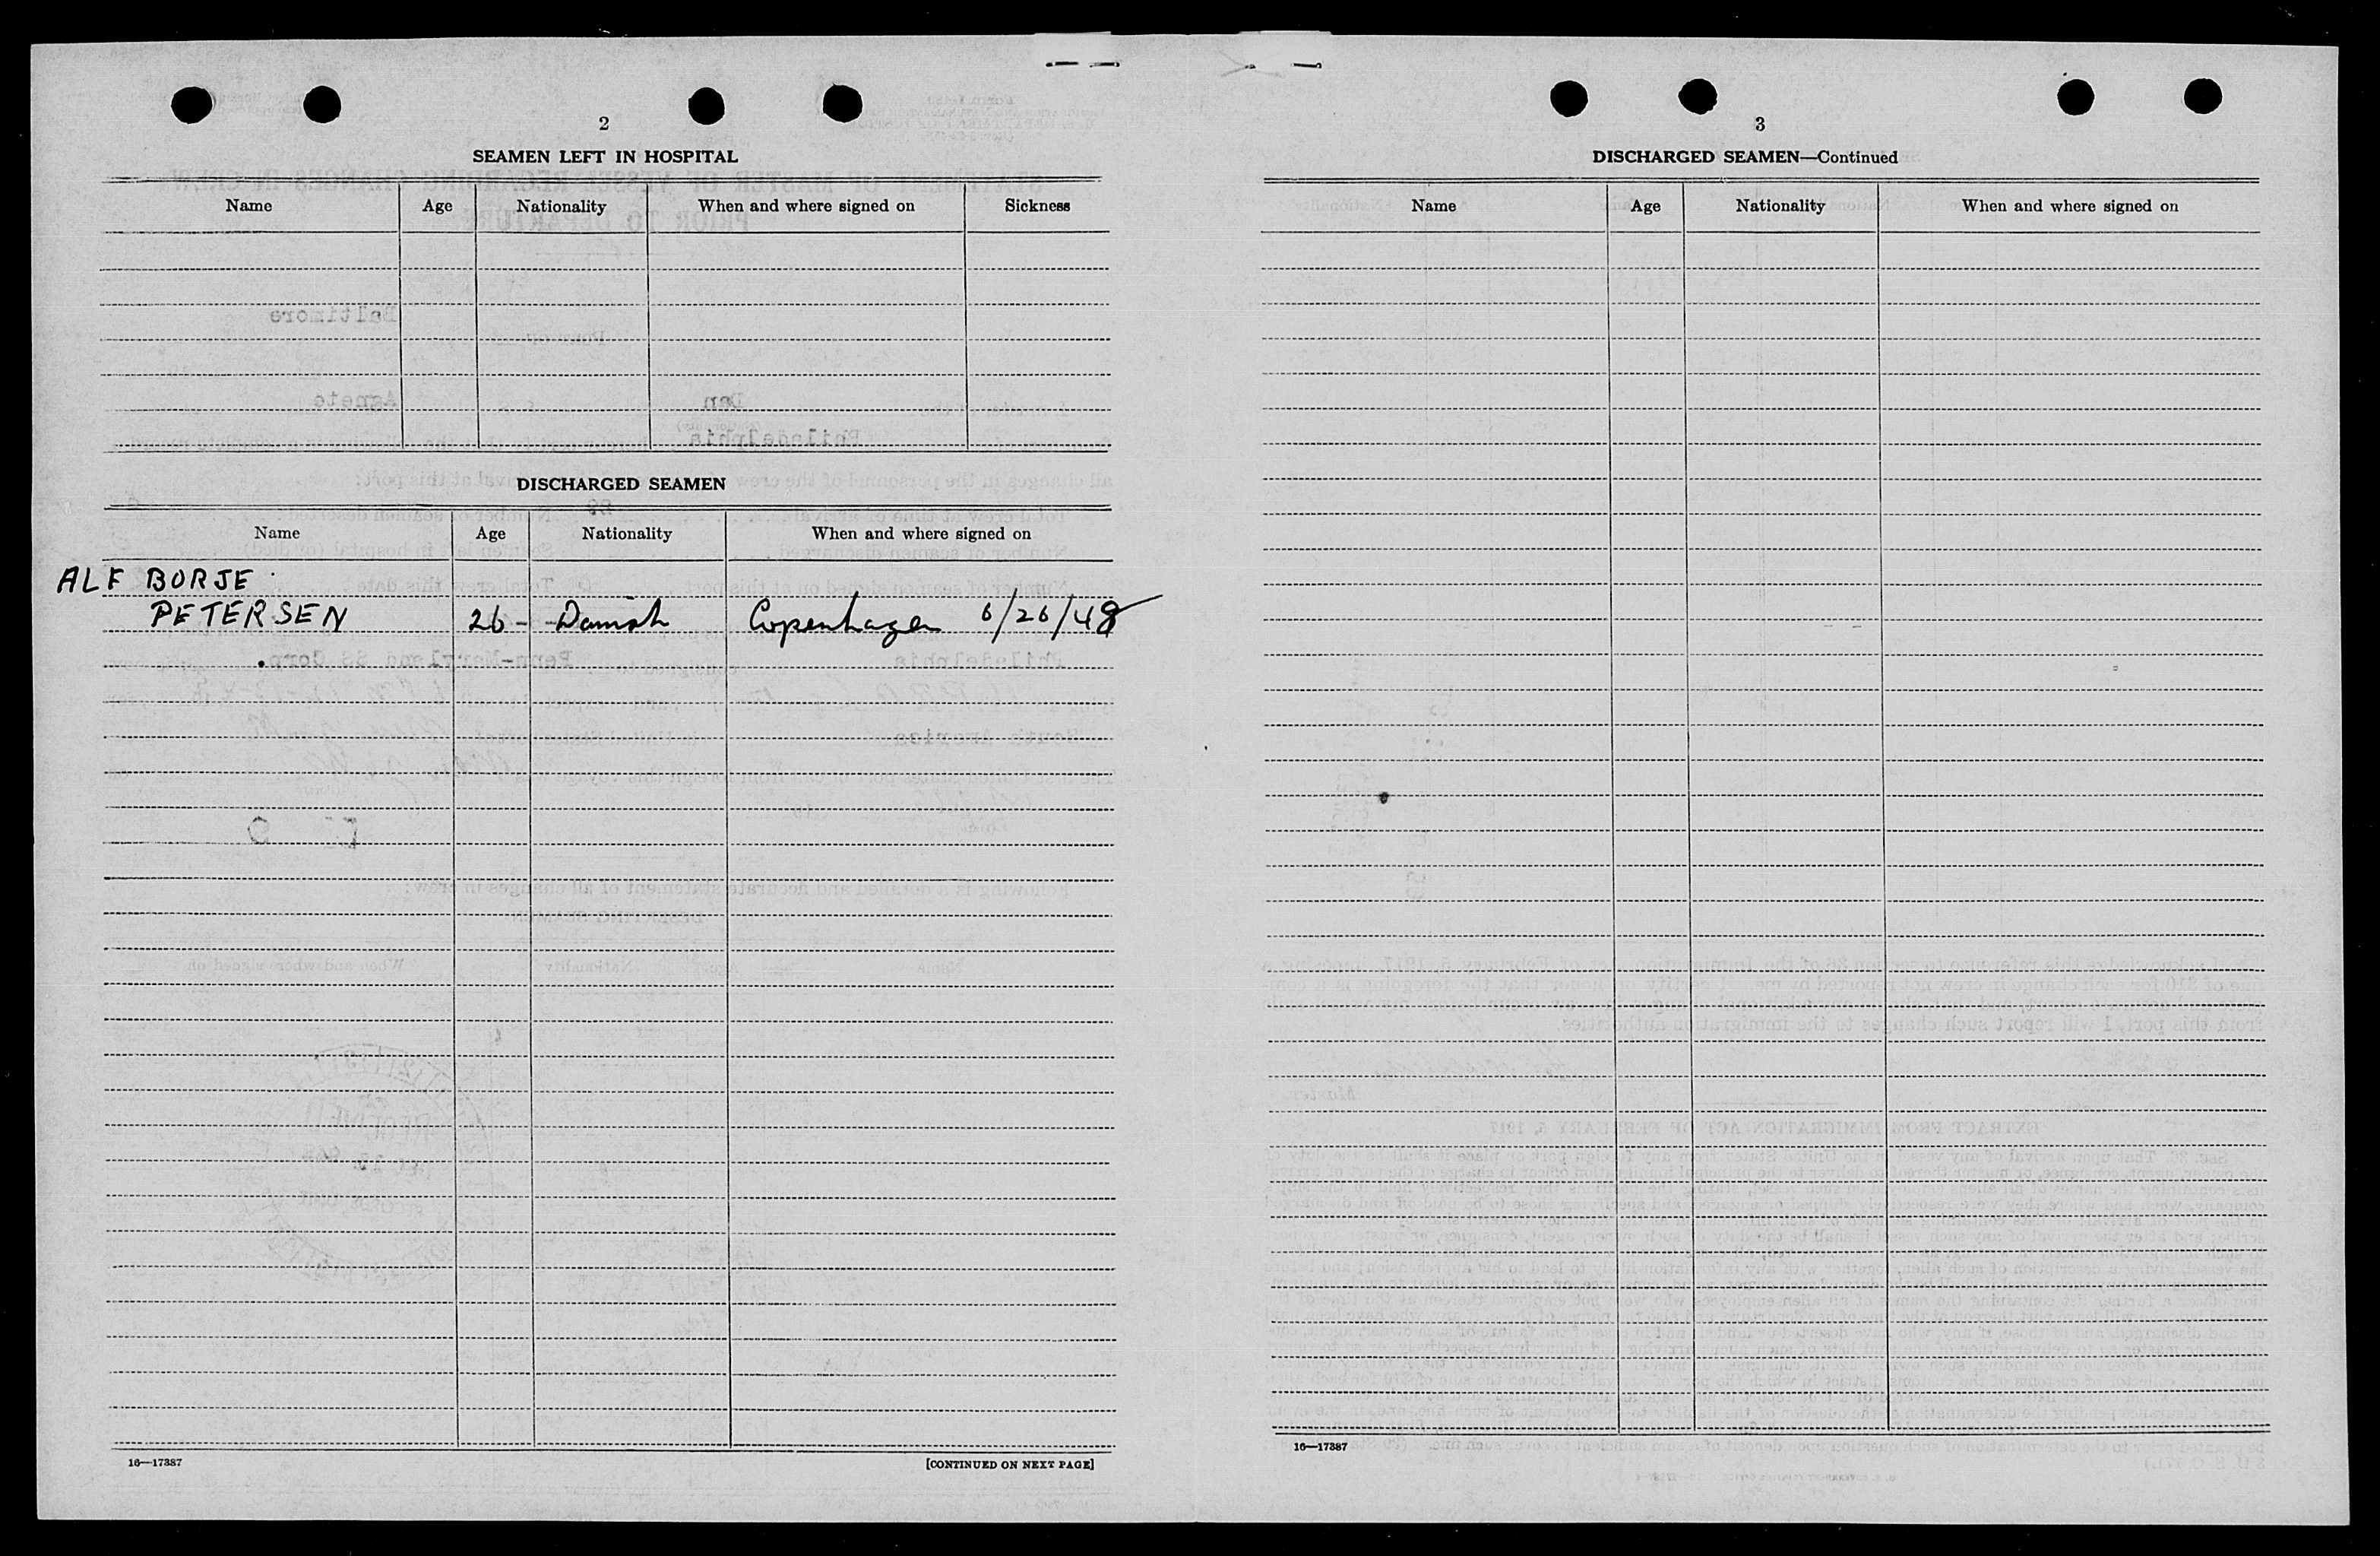 2
SEAMEN LEFT IN HOSPITAL
Name Age Nationality When and where signed on Sickness
DISCHARGED SEAMEN
Name Age Nationality When and where signed on
ALF BORJE
PETERSEN 26 - Danish Copenhagen 6/26/48
16—17387 [CONTINUED ON NEXT PAGE]
3
DISCHARGED SEAMEN—Continued
Name Age Nationality When and where signed on
16—17387